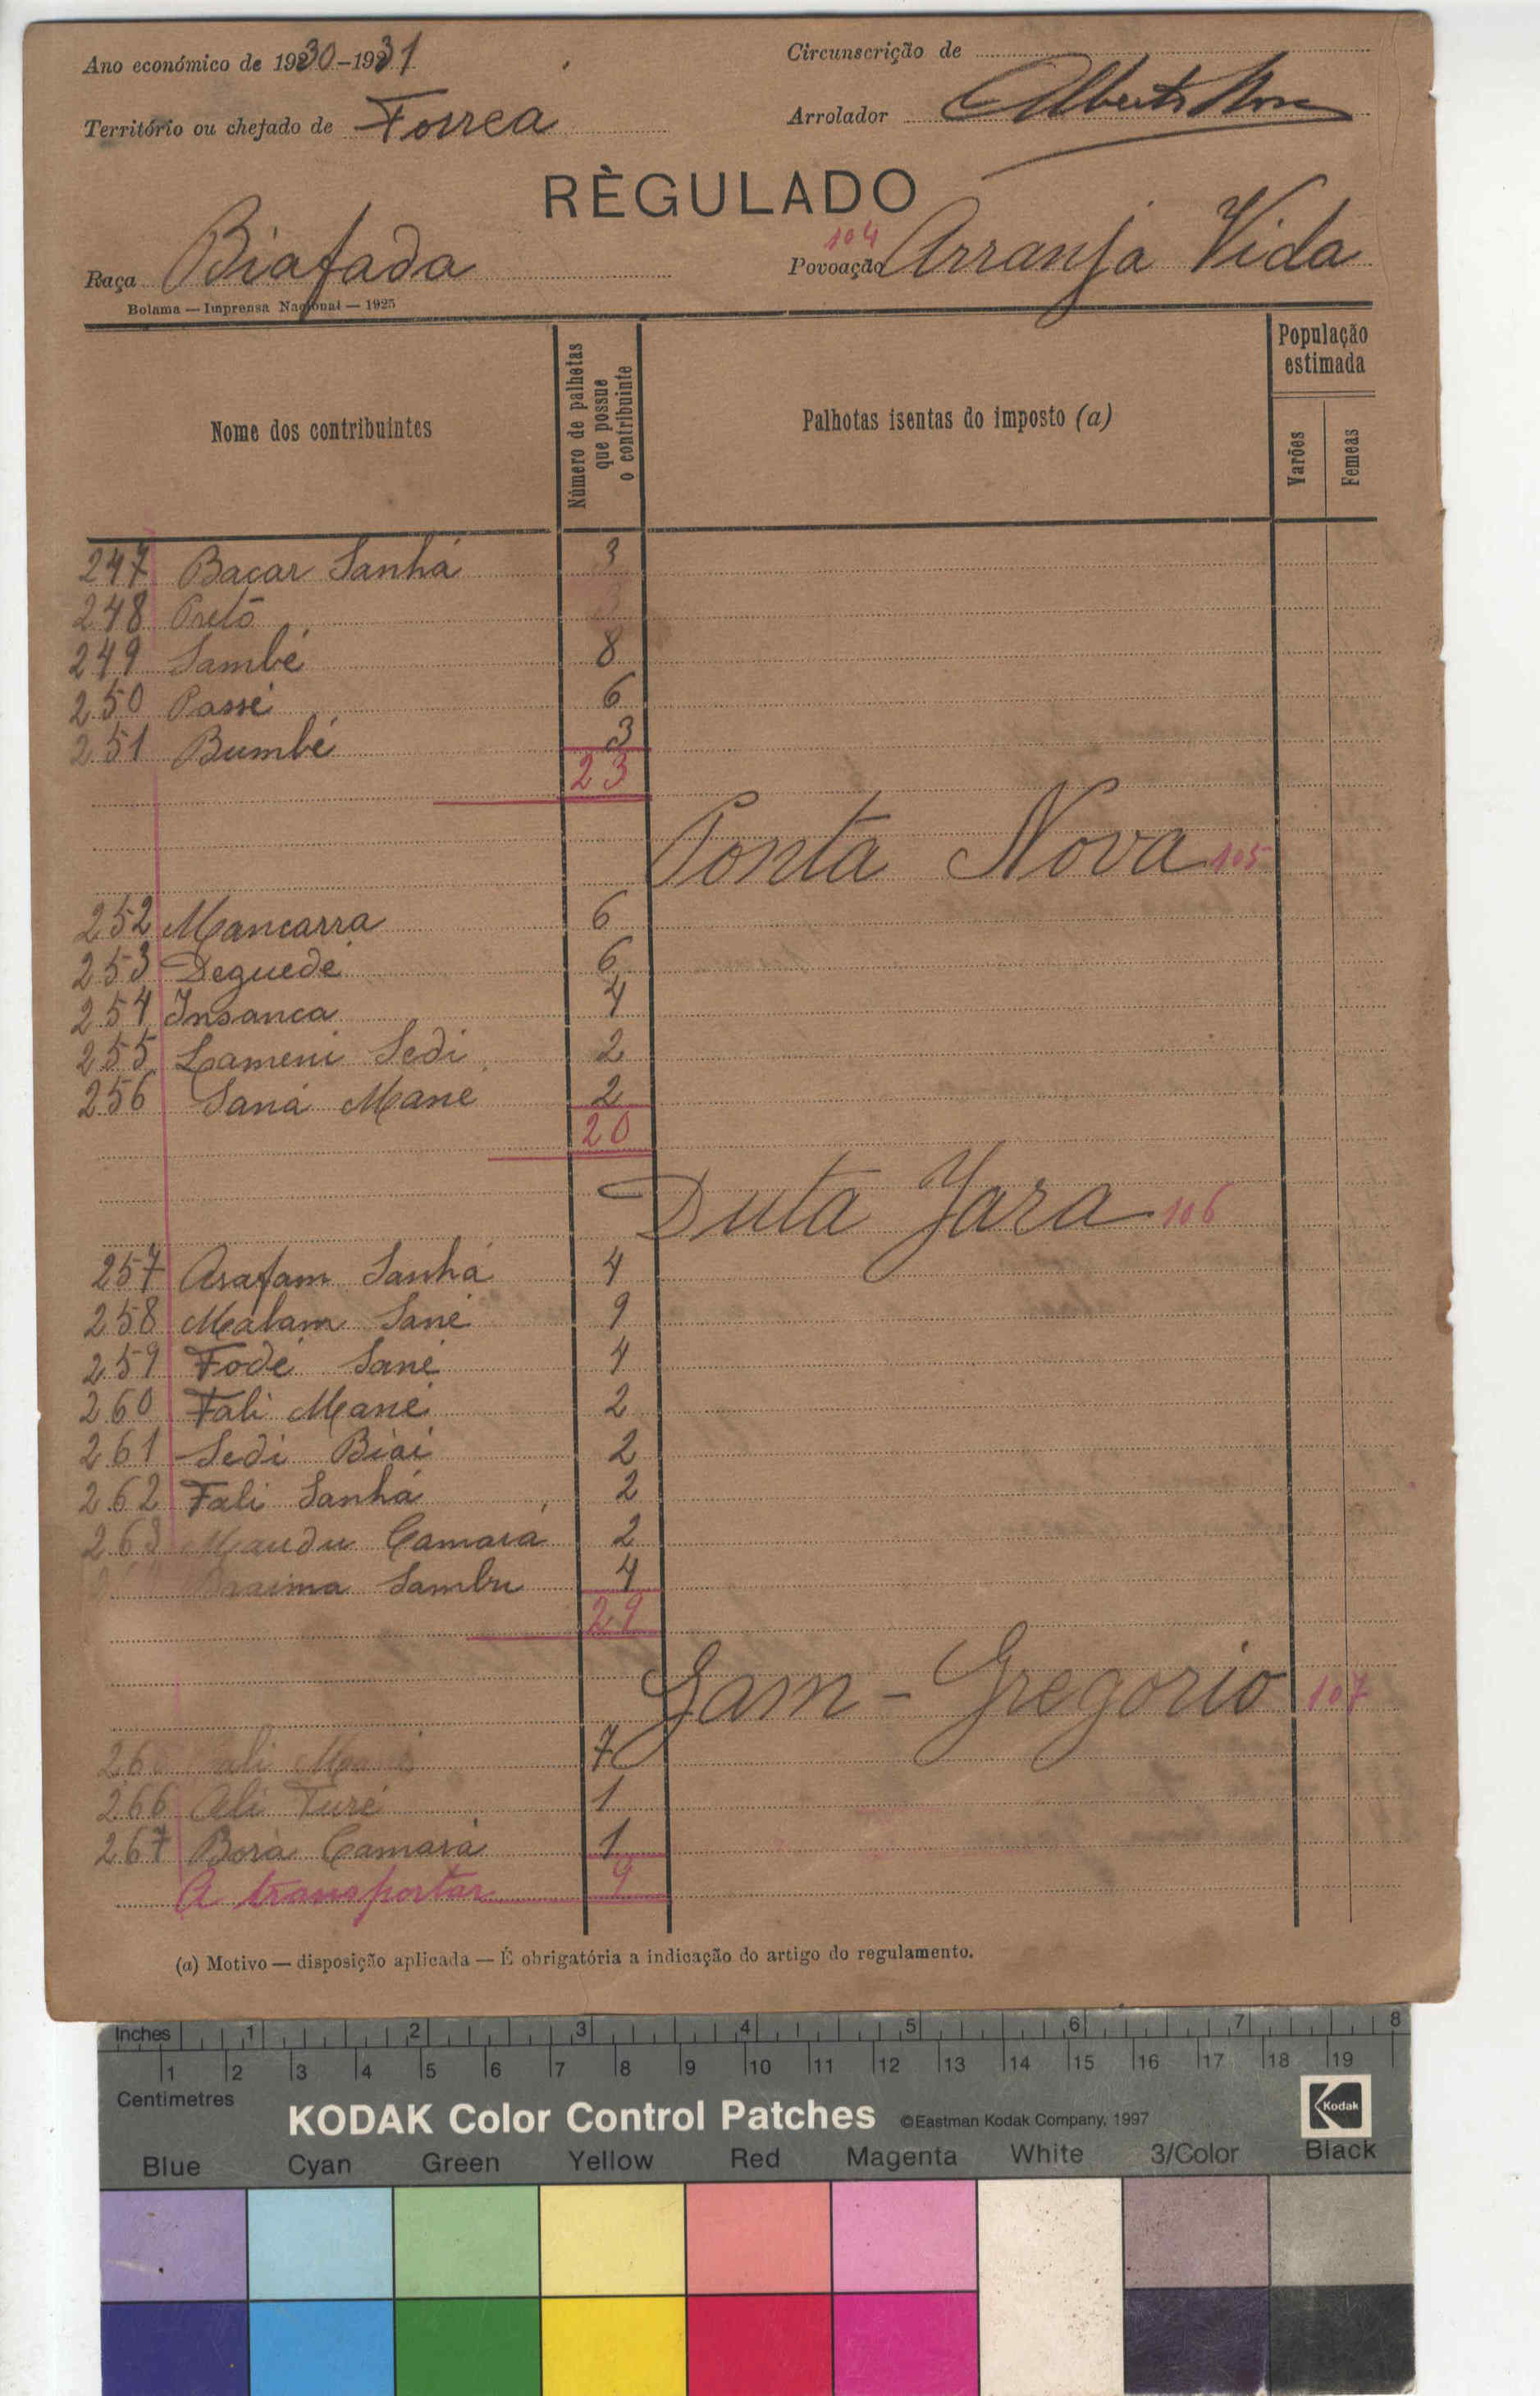 Ano económico de 1930-1931
Circunscrição de
Território ou chefado de Forrea
Arrolador Alberto
RÈGULADO
Raça Biafada
104
Povoação Arranja Vida
Bolama — Imprensa Nacional — 1925
Nome dos contribuintes
Número de palhetas que possue o contribuinte
Palhotas isentas do imposto (a)
População estimada
Varões
Femeas
247 Bacar Sanhá 3
248 Preto 3
249 Sambé 8
250 Passé 6
251 Bumbé 3
23
Ponta Nova 105
252 Mancarra 6
253 Deguedé 6
254 Insanca 4
255 Lameni Sedi 2
256 Saná Mané 2
20
Duta Jara 106
257 Arafam Sanhá 4
258 Malam Sané 9
259 Fodé Sané 4
260 Fali Mané 2
261 Sedi Biai 2
262 Fali Sanhá 2
263 Maudu Camará 2
Braima Sambu 4
29
Gam-Gregorio 107
7
266 Ali Turé 1
267 Bora Camará 1
A transportar 9
(a) Motivo — disposição aplicada — É obrigatória a indicação do artigo do regulamento.
Inches 1 2 3 4 5 6 7 8
1 2 3 4 5 6 7 8 9 10 11 12 13 14 15 16 17 18 19
Centimetres
KODAK Color Control Patches ©Eastman Kodak Company, 1997
Kodak
Blue Cyan Green Yellow Red Magenta White 3/Color Black